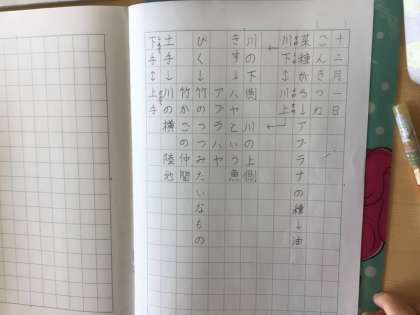 十二月一日
ごんぎつね
菜種がら→アブラナの種→油
川下↕川上
川の下側 川の上側
きす→ハヤという魚
アブラハヤ
びく→竹のつつみたいなもの
竹かごの仲間
土手→川の横 陸地
下手↕上手